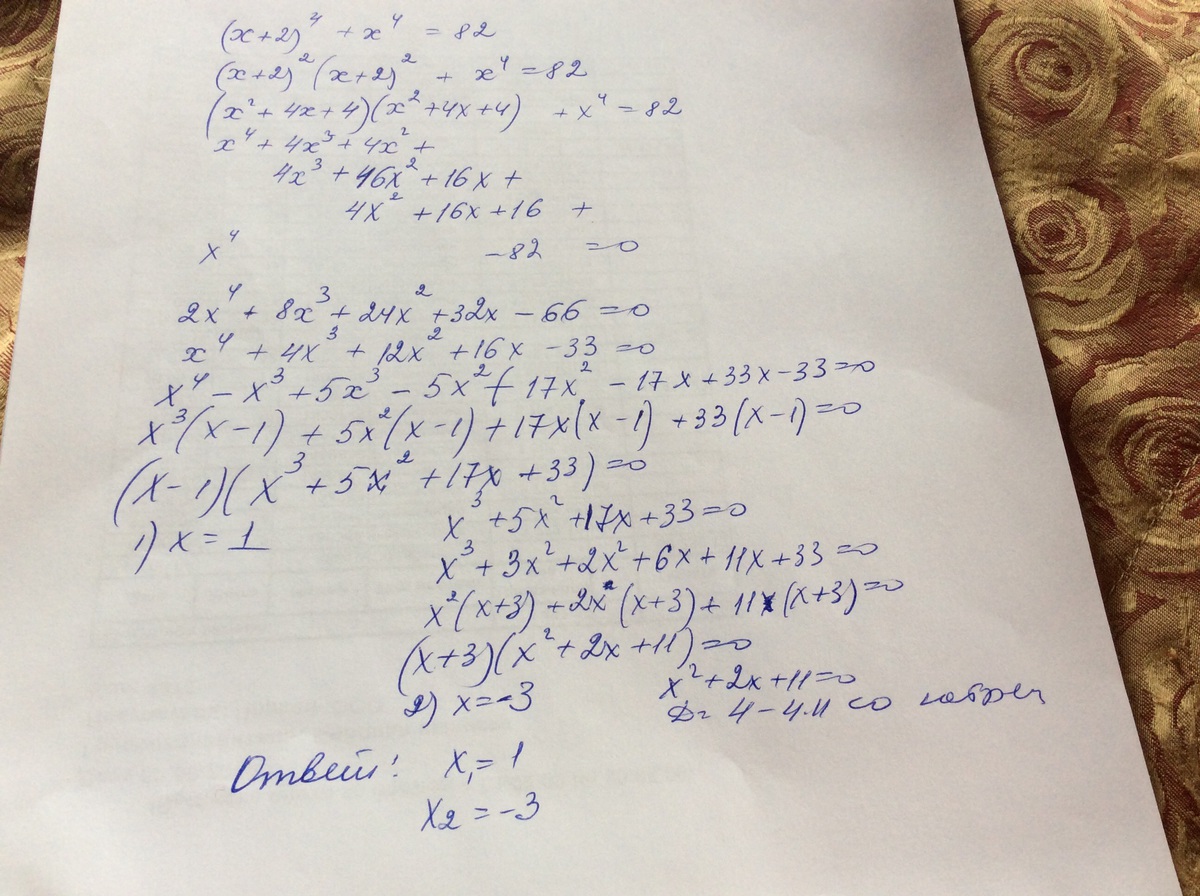 (x+2)⁴ + x⁴ = 82
(x+2)²(x+2)² + x⁴ = 82
(x² + 4x + 4)(x² + 4x + 4) + x⁴ = 82
x⁴ + 4x³ + 4x² +
4x³ + 16x² + 16x +
4x² + 16x + 16 +
x⁴ -82 = 0
2x⁴ + 8x³ + 24x² + 32x - 66 = 0
x⁴ + 4x³ + 12x² + 16x - 33 = 0
x⁴ - x³ + 5x³ - 5x² + 17x² - 17x + 33x - 33 = 0
x³(x-1) + 5x²(x-1) + 17x(x-1) + 33(x-1) = 0
(x-1)(x³ + 5x² + 17x + 33) = 0
1) x = 1
x³ + 5x² + 17x + 33 = 0
x³ + 3x² + 2x² + 6x + 11x + 33 = 0
x²(x+3) + 2x(x+3) + 11(x+3) = 0
(x+3)(x² + 2x + 11) = 0
2) x = -3
x² + 2x + 11 = 0
D = 4 - 4·11 < 0
Ответ: x₁ = 1
x₂ = -3